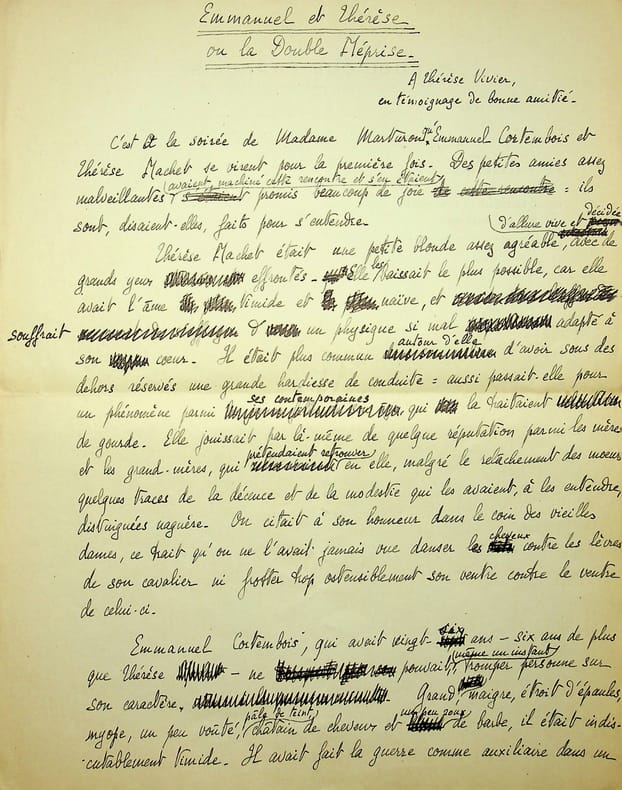 Emmanuel et Thérèse
ou la Double Méprise.
A Thérèse Vivier,
en témoignage de bonne amitié.
C'est à la soirée de Madame Marturon qu'Emmanuel Cortembois et
Thérèse Machet se virent pour la première fois. Des petites amies assez
avaient machiné cette rencontre et s'en étaient
malveillantes s'étaient promis beaucoup de joie de cette rencontre : ils
sont, disaient-elles, faits pour s'entendre.
d'allure vive et décidée
Thérèse Machet était une petite blonde assez agréable, avec de
grands yeux effrontés. Elle les baissait le plus possible, car elle
avait l'âme timide et naïve, et
souffrait d'un physique si mal adapté à
autour d'elle
son cœur. Il était plus commun d'avoir sous des
dehors réservés une grande hardiesse de conduite : aussi passait-elle pour
ses contemporaines
un phénomène parmi qui la traitaient
de gourde. Elle jouissait par là-même de quelque réputation parmi les mères
prétendaient retrouver
et les grand-mères, qui en elle, malgré le relâchement des mœurs
quelques traces de la décence et de la modestie qui les avaient, à les entendre,
distinguées naguère. On citait à son honneur dans le coin des vieilles
cheveux
dames, ce trait qu'on ne l'avait jamais vue danser les contre les lèvres
de son cavalier ni frotter trop ostensiblement son ventre contre le ventre
de celui-ci.
six
Emmanuel Cortembois, qui avait vingt- ans - six ans de plus
même un instant
que Thérèse - ne pouvait tromper personne sur
son caractère. Grand, maigre, étroit d'épaules,
pâle de teint, un peu roux
myope, un peu voûté, châtain de cheveux et de barbe, il était indis-
cutablement timide. Il avait fait la guerre comme auxiliaire dans un